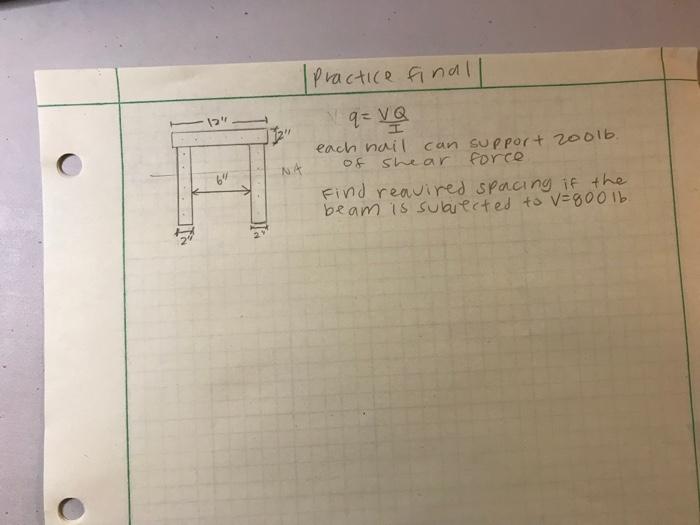 Practice final
12"
q= VQ
I
2"
each nail can support 200lb.
of shear force
NA
6"
Find reavired spacing if the
beam is subjected to V=800 lb.
2"
2"